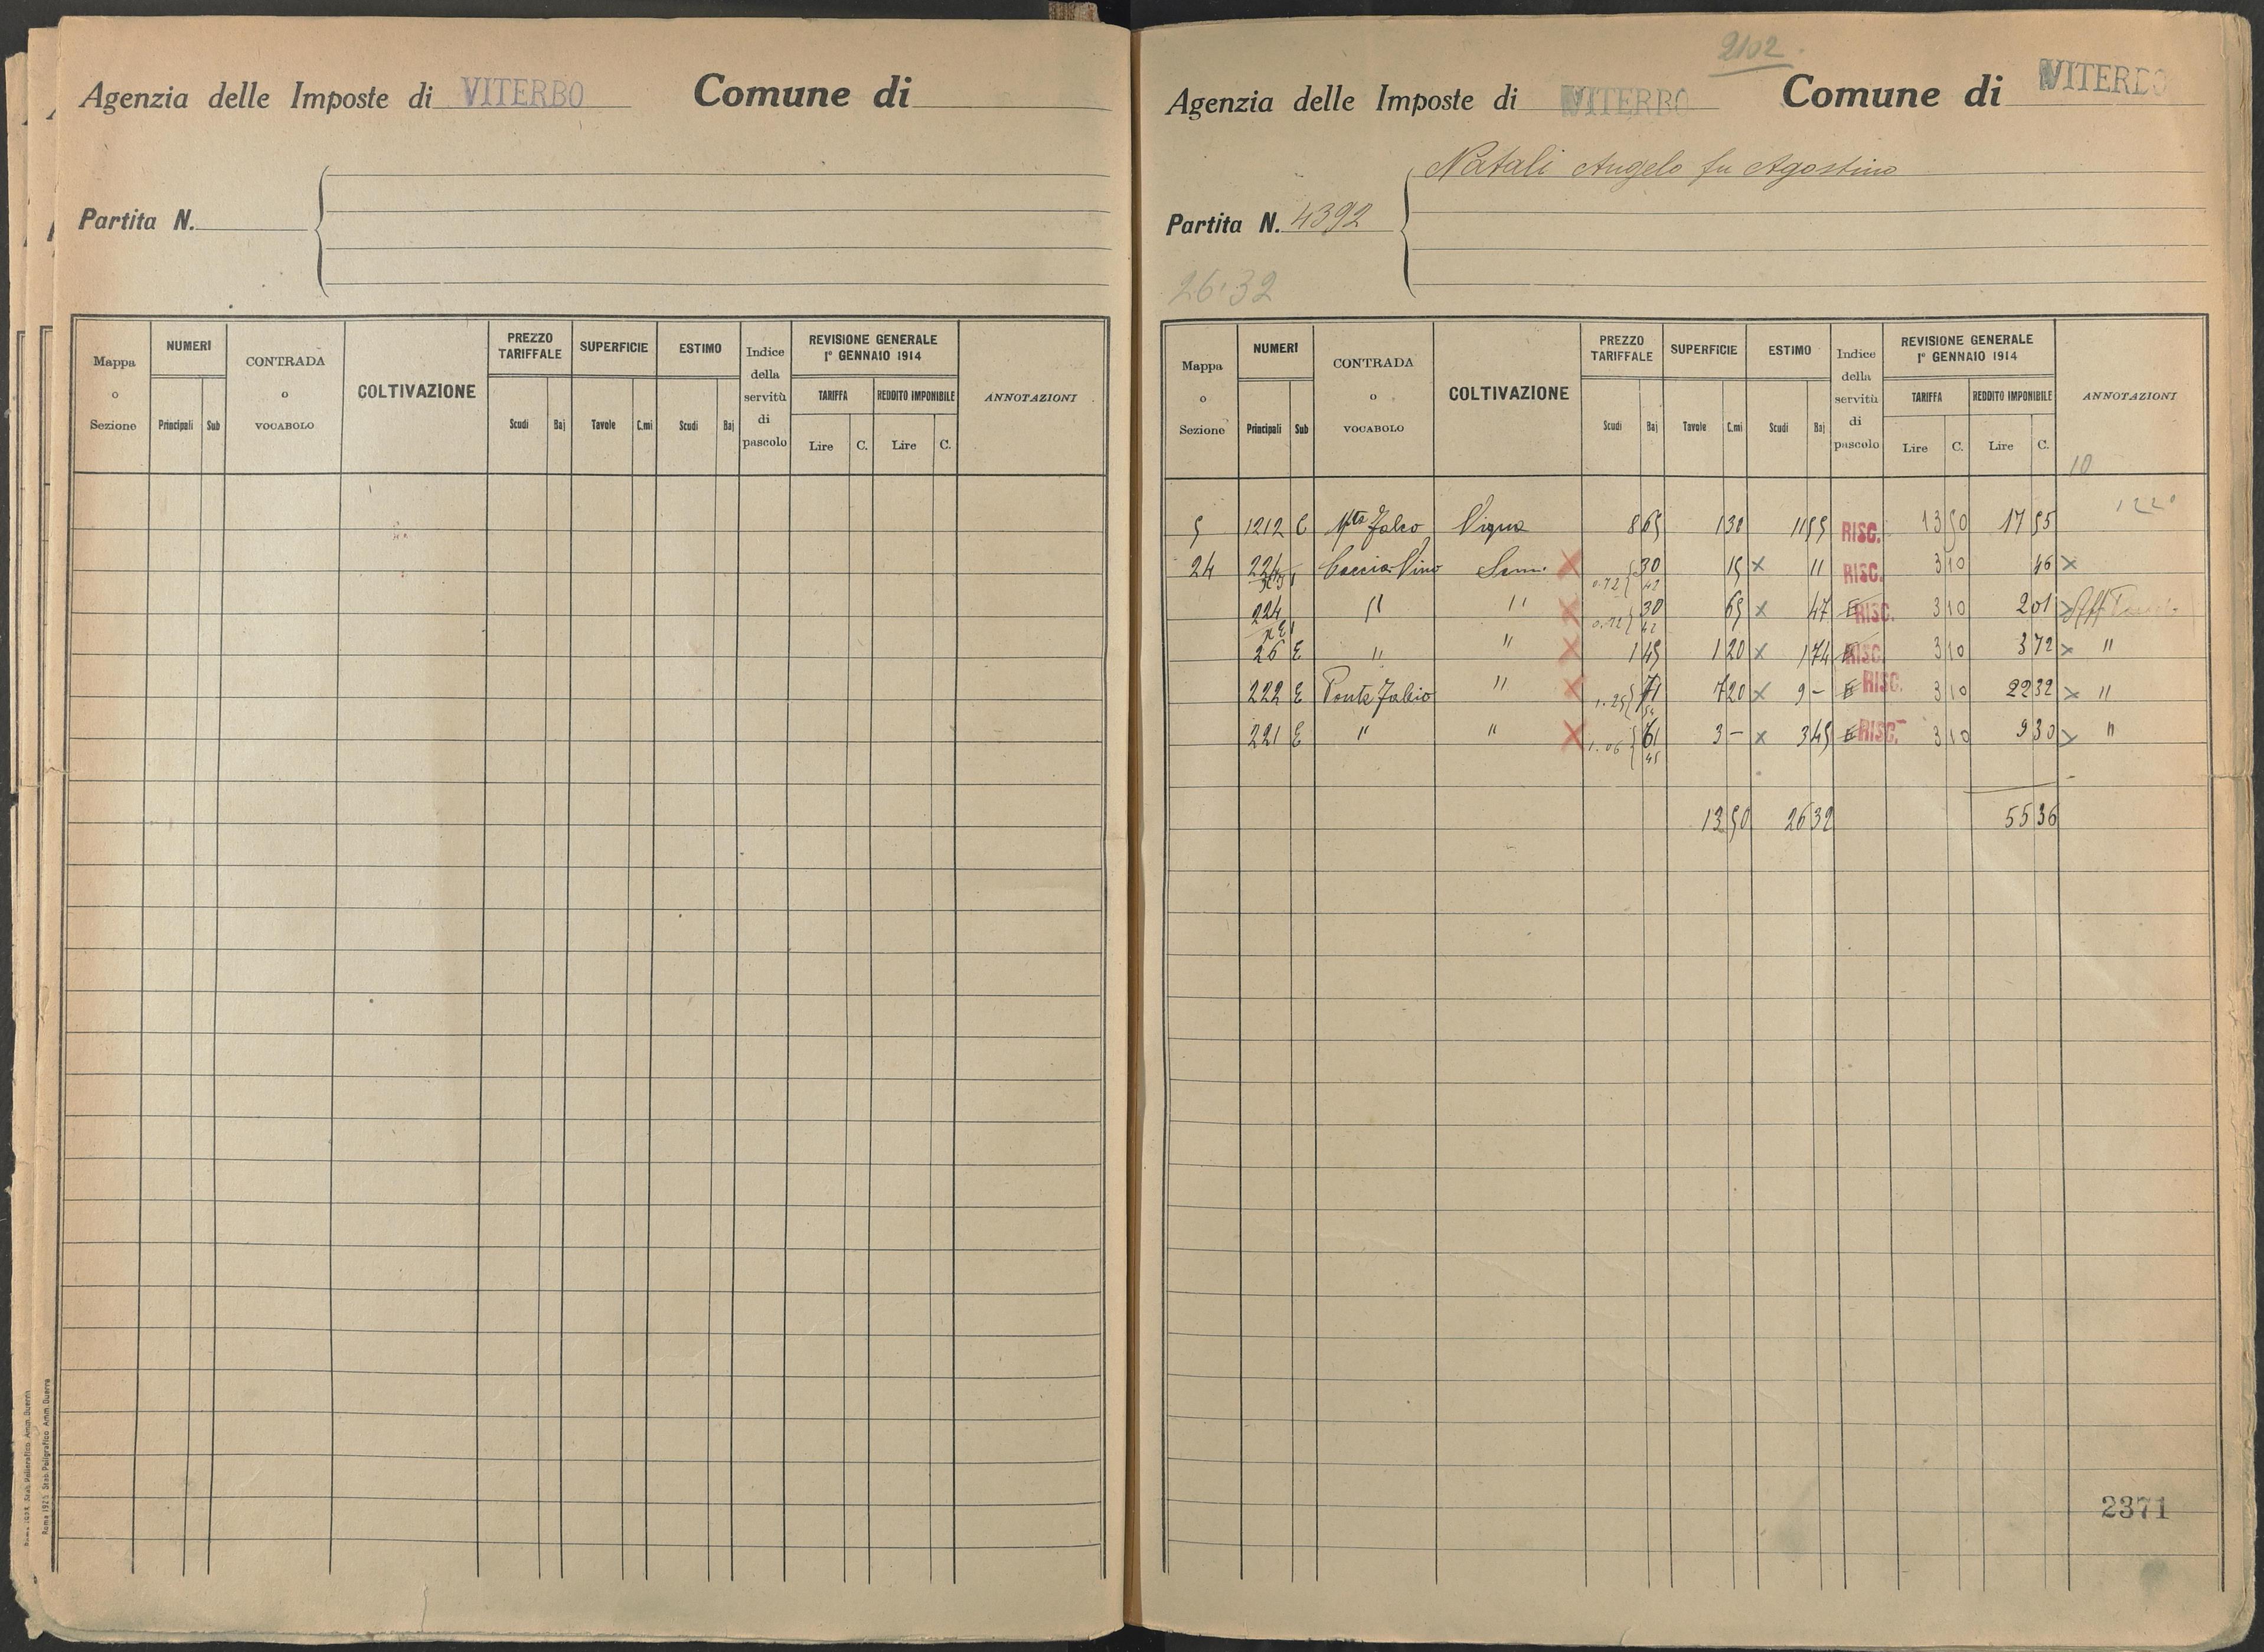 Agenzia delle Imposte di VITERBO Comune di
Partita N.
Mappa o Sezione NUMERI CONTRADA o VOCABOLO COLTIVAZIONE PREZZO TARIFFALE SUPERFICIE ESTIMO Indice della servitù di pascolo REVISIONE GENERALE 1° GENNAIO 1914 ANNOTAZIONI
TARIFFA REDDITO IMPONIBILE
Principali Sub Scudi Baj Tavole C.mi Scudi Baj Lire C. Lire C.
Roma 1925 Stab. Poligrafico Amm. Guerra
2102
Agenzia delle Imposte di VITERBO Comune di VITERBO
Natali Angelo fu Agostino
Partita N. 4392
26.32
Mappa o Sezione NUMERI CONTRADA o VOCABOLO COLTIVAZIONE PREZZO TARIFFALE SUPERFICIE ESTIMO Indice della servitù di pascolo REVISIONE GENERALE 1° GENNAIO 1914 ANNOTAZIONI
TARIFFA REDDITO IMPONIBILE
Principali Sub Scudi Baj Tavole C.mi Scudi Baj Lire C. Lire C.
10
5 1212 Falco Vigna 8 65 1 30 11 55 RISC. 13 50 17 55
24 224 Caccia Vino Sem. X 0.72 30 42 15 x 11 RISC. 3 10 46 x
224 " " X 0.72 30 42 65 x 47 E RISC. 3 10 2 01 x
26 E " " X 1 45 1 20 x 1 74 RISC. 3 10 3 72 x "
222 E Ponte Falcio " X 1.25 71 54 7 20 x 9 - E RISC. 3 10 22 32 x "
221 E " " X 1.06 61 45 3 - x 3 45 E RISC. 3 10 9 30 x "
13 50 26 32 55 36
2371